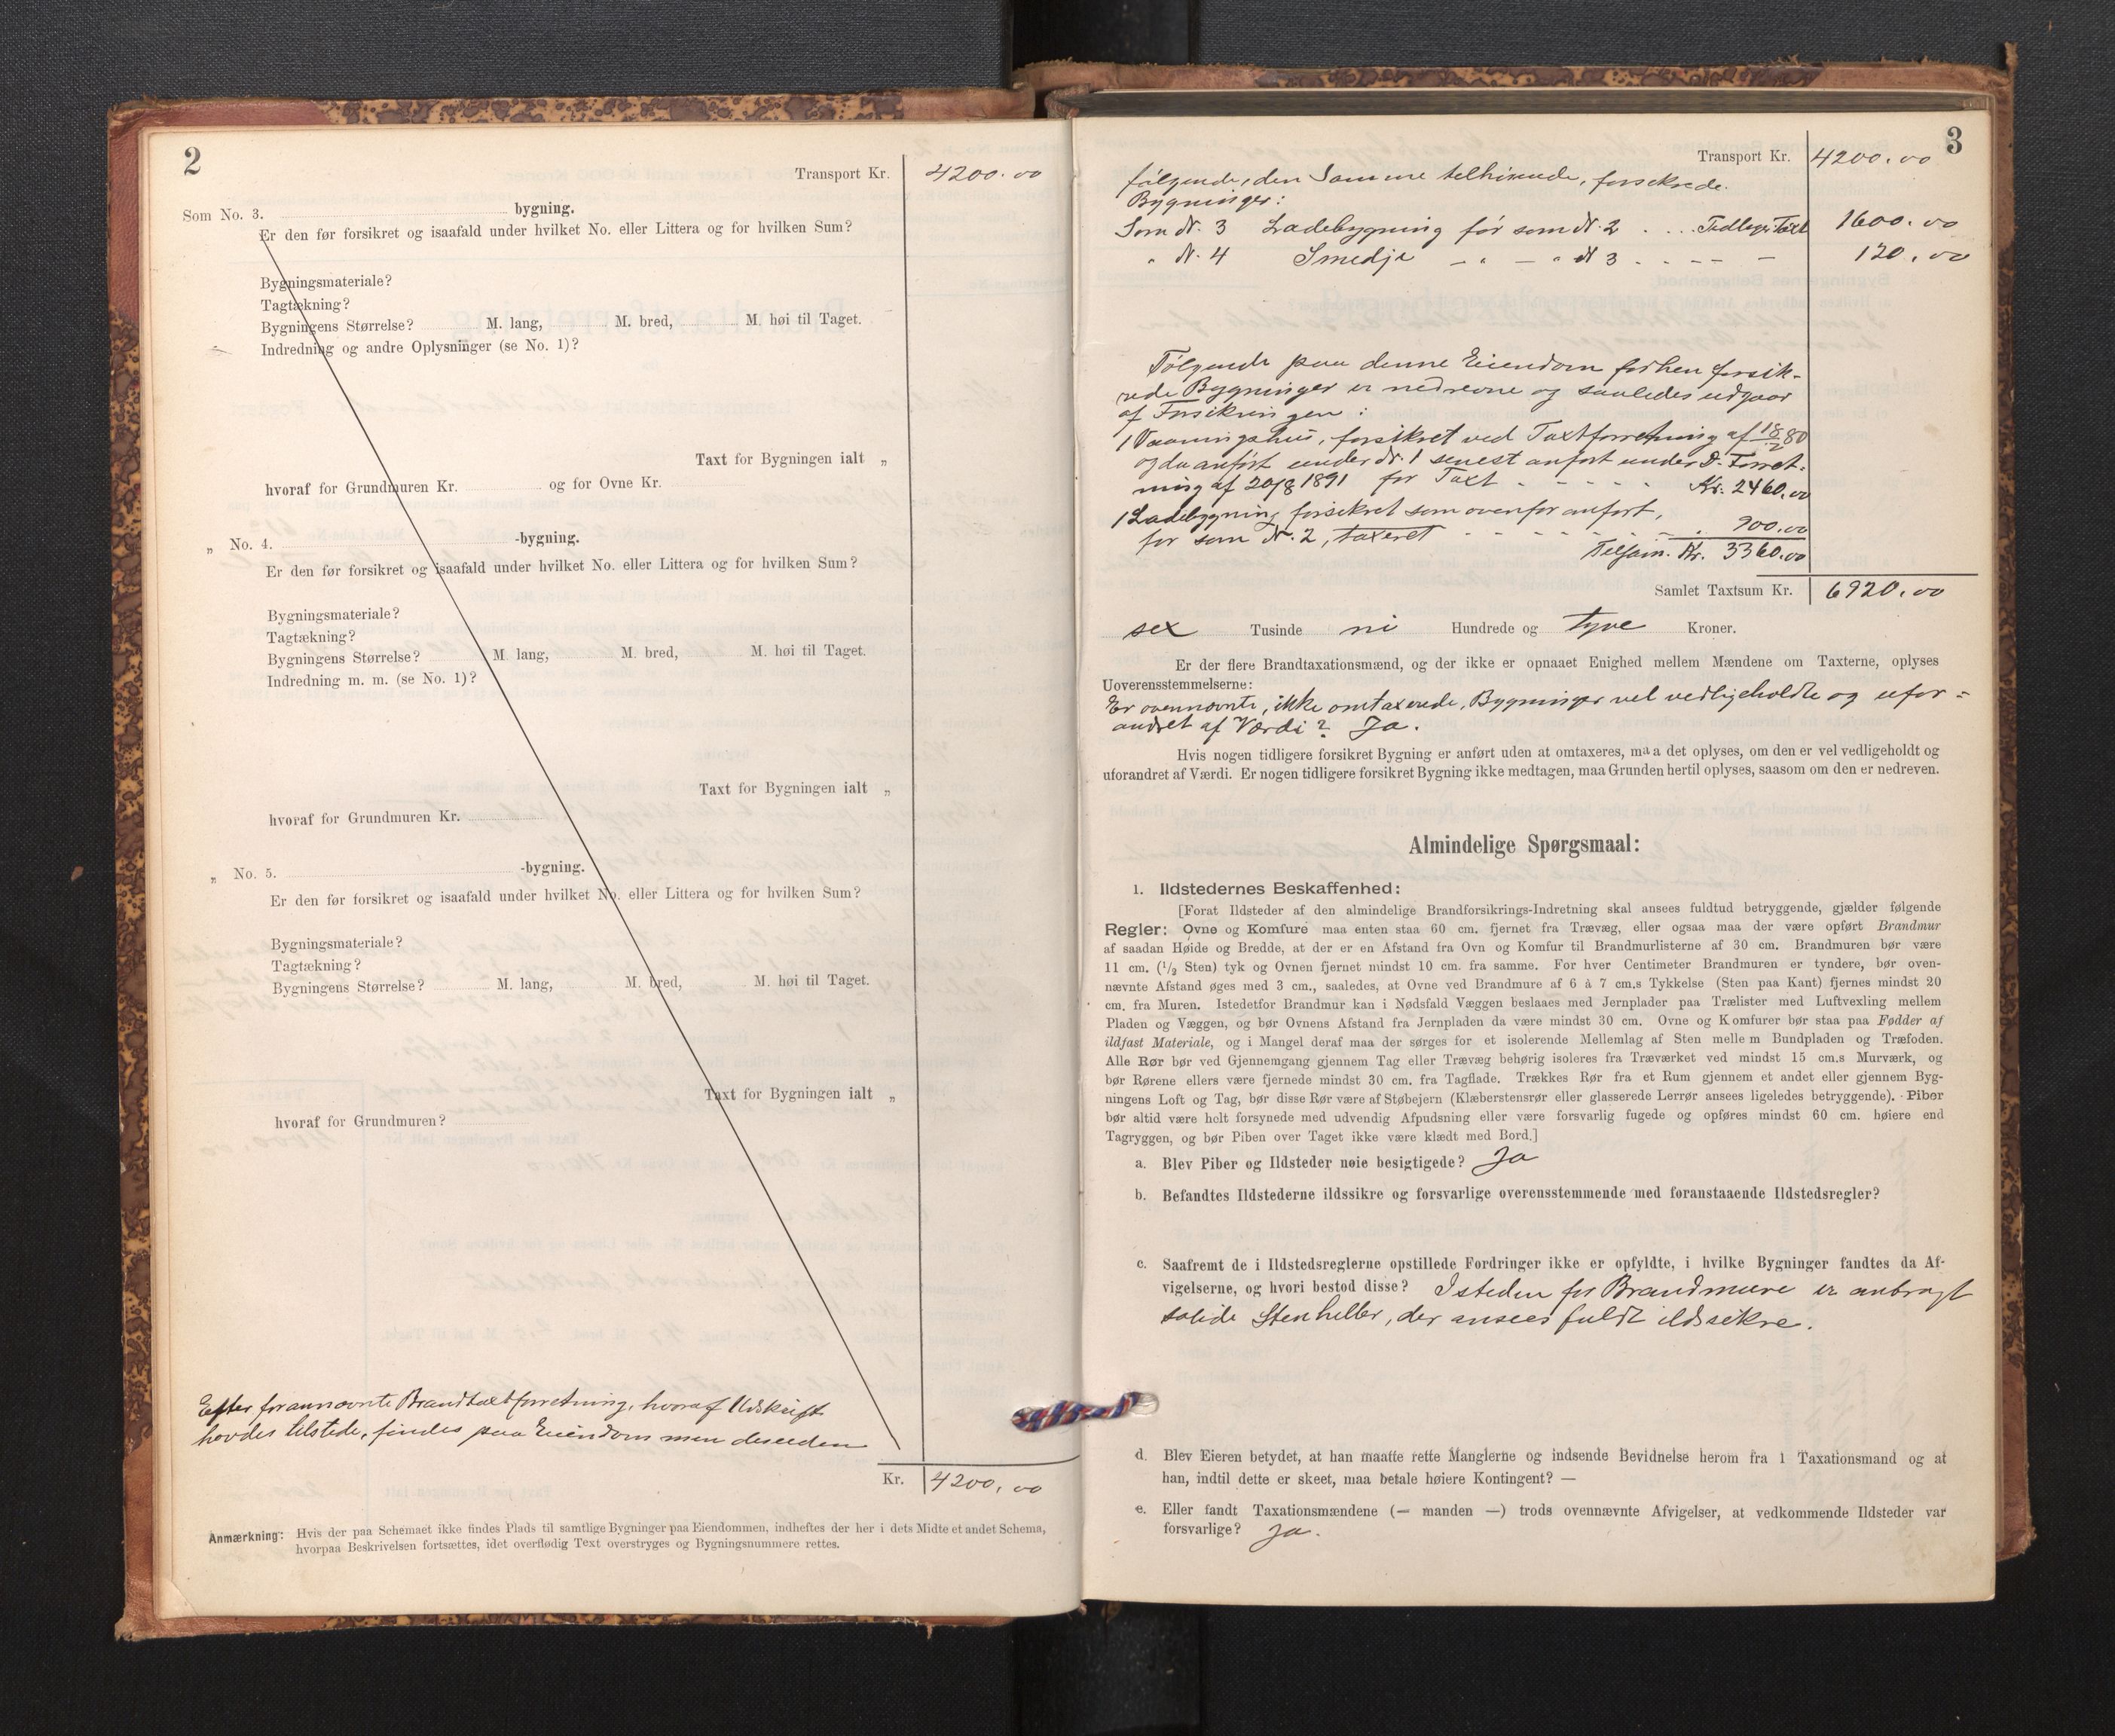 2
Transport Kr. 4200.00
Som No. 3. bygning.
Er den før forsikret og isaafald under hvilket No. eller Littera og for hvilken Sum?
Bygningsmateriale?
Tagtækning?
Bygningens Størrelse? M. lang, M. bred, M. høi til Taget.
Indredning og andre Oplysninger (se No. 1)?
Taxt for Bygningen ialt „
hvoraf for Grundmuren Kr. og for Ovne Kr.
„ No. 4. -bygning.
Er den før forsikret og isaafald under hvilket No. eller Littera og for hvilken Sum?
Bygningsmateriale?
Tagtækning?
Bygningens Størrelse? M. lang, M. bred, M. høi til Taget.
Indredning m. m. (se No. 1)?
Taxt for Bygningen ialt „
hvoraf for Grundmuren Kr.
„ No. 5. -bygning.
Er den før forsikret og isaafald under hvilket No. eller Littera og for hvilken Sum?
Bygningsmateriale?
Tagtækning?
Bygningens Størrelse? M. lang, M. bred, M. høi til Taget.
Taxt for Bygningen ialt „
hvoraf for Grundmuren?
Efter forannævnte Brandtaxtforretning, hvoraf Udskrift
havdes tilstede, findes paa Eiendommen desuden
Kr. 4200.00
Anmærkning: Hvis der paa Schemaet ikke findes Plads til samtlige Bygninger paa Eiendommen, indheftes der her i dets Midte et andet Schema,
hvorpaa Beskrivelsen fortsættes, idet overflødig Text overstryges og Bygningsnummere rettes.
3
Transport Kr. 4200.00
følgende, den Samme tilhørende, forsikrede
Bygninger:
Som N. 3 Ladebygning før som N. 2 . . . Tidligere Taxt 1600.00
" N. 4 Smedje — " — " N 3 . - - - — 120.00
Følgende paa denne Eiendom forhen forsik-
rede Bygninger er nedrevne og saaledes udgaar
af Forsikringen:
1 Vaaningshus, forsikret ved Taxtforretning af 18/2 80
og da anført under N. 1 senest anført under D. Forret-
ning af 20/8 1891 for Taxt - - - - - Kr. 2460.00
1 Ladebygning forsikret som ovenfor anført,
før som N. 2, taxeret - - - - - - 900.00
Tilsam. Kr. 3360.00
Samlet Taxtsum Kr. 6920.00
sex Tusinde ni Hundrede og tyve Kroner.
Er der flere Brandtaxationsmænd, og der ikke er opnaaet Enighed mellem Mændene om Taxterne, oplyses
Uoverensstemmelserne:
Er ovennævnte, ikke omtaxerede, Bygninger vel vedligeholdte og ufor=
andret af Værdi? Ja.
Hvis nogen tidligere forsikret Bygning er anført uden at omtaxeres, maa det oplyses, om den er vel vedligeholdt og
uforandret af Værdi. Er nogen tidligere forsikret Bygning ikke medtagen, maa Grunden hertil oplyses, saasom om den er nedreven.
Almindelige Spørgsmaal:
1. Ildstedernes Beskaffenhed:
[Forat Ildsteder af den almindelige Brandforsikrings-Indretning skal ansees fuldtud betryggende, gjælder følgende
Regler: Ovne og Komfure maa enten staa 60 cm. fjernet fra Trævæg, eller ogsaa maa der være opført Brandmur
af saadan Høide og Bredde, at der er en Afstand fra Ovn og Komfur til Brandmurlisterne af 30 cm. Brandmuren bør være
11 cm. (1/2 Sten) tyk og Ovnen fjernet mindst 10 cm. fra samme. For hver Centimeter Brandmuren er tyndere, bør oven-
nævnte Afstand øges med 3 cm., saaledes, at Ovne ved Brandmure af 6 à 7 cm.s Tykkelse (Sten paa Kant) fjernes mindst 20
cm. fra Muren. Istedetfor Brandmur kan i Nødsfald Væggen beslaaes med Jernplader paa Trælister med Luftvexling mellem
Pladen og Væggen, og bør Ovnens Afstand fra Jernpladen da være mindst 30 cm. Ovne og Komfurer bør staa paa Fødder af
ildfast Materiale, og i Mangel deraf maa der sørges for et isolerende Mellemlag af Sten mellem Bundpladen og Træfoden.
Alle Rør bør ved Gjennemgang gjennem Tag eller Trævæg behørig isoleres fra Træværket ved mindst 15 cm.s Murværk, og
bør Rørene ellers være fjernede mindst 30 cm. fra Tagflade. Trækkes Rør fra et Rum gjennem et andet eller gjennem Byg-
ningens Loft og Tag, bør disse Rør være af Støbejern (Klæberstensrør eller glasserede Lerrør ansees ligeledes betryggende). Piber
bør altid være helt forsynede med udvendig Afpudsning eller være forsvarlig fugede og opføres mindst 60 cm. høiere end
Tagryggen, og bør Piben over Taget ikke være klædt med Bord.]
a. Blev Piber og Ildsteder nøie besigtigede? Ja
b. Befandtes Ildstederne ildssikre og forsvarlige overensstemmende med foranstaaende Ildstedsregler?
c. Saafremt de i Ildstedsreglerne opstillede Fordringer ikke er opfyldte, i hvilke Bygninger fandtes da Af-
vigelserne, og hvori bestod disse? Isteden for Brandmure er anbragt
solide Stenheller, der ansees fuldt ildssikre.
d. Blev Eieren betydet, at han maatte rette Manglerne og indsende Bevidnelse herom fra 1 Taxationsmand og at
han, indtil dette er skeet, maa betale høiere Kontingent? —
e. Eller fandt Taxationsmændene (— manden —) trods ovennævnte Afvigelser, at vedkommende Ildsteder var
forsvarlige? Ja.